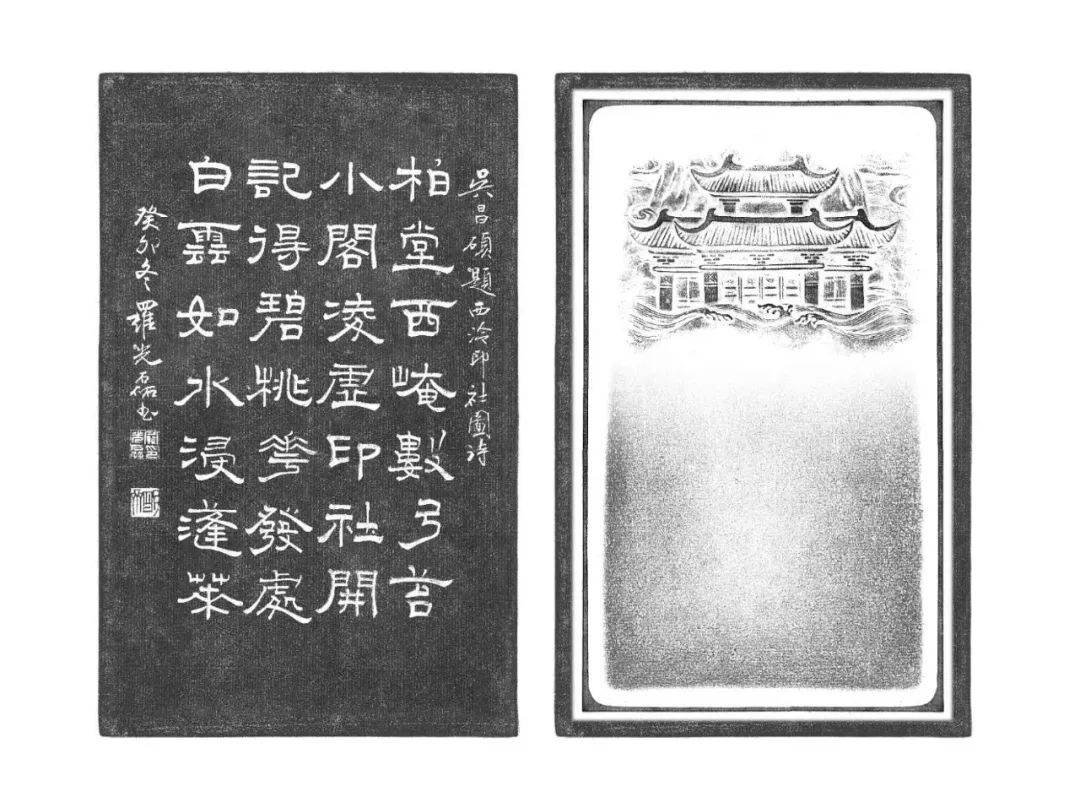 吳昌碩題西泠印社圖詩
柏堂西崦數弓苔
小閣凌虛印社開
記得碧桃華發處
白雲如水浸蓬萊
癸卯冬羅光磊書